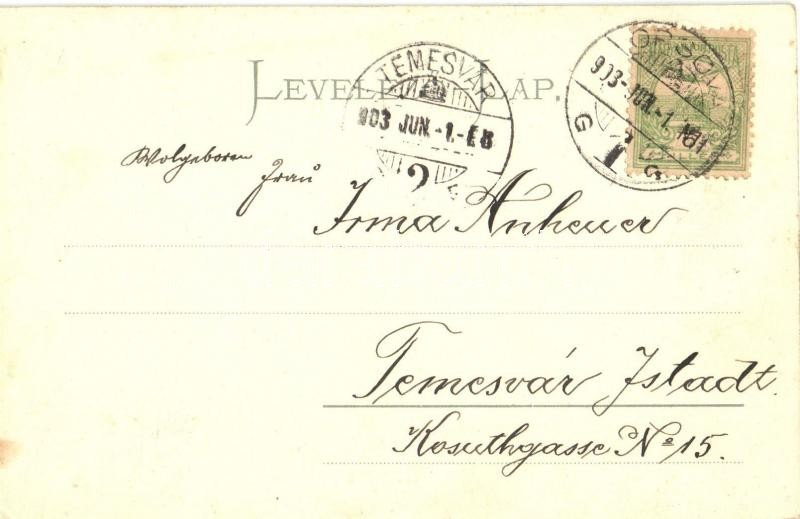 LEVELE LAP.
TEMESVÁR
903 JUN.-1.-E8
2
ORSOVA
903-JUN.-1.
Wolgeboren
Frau
Irma Anheuer
Temesvár Jstadt.
Kosuthgasse No 15.